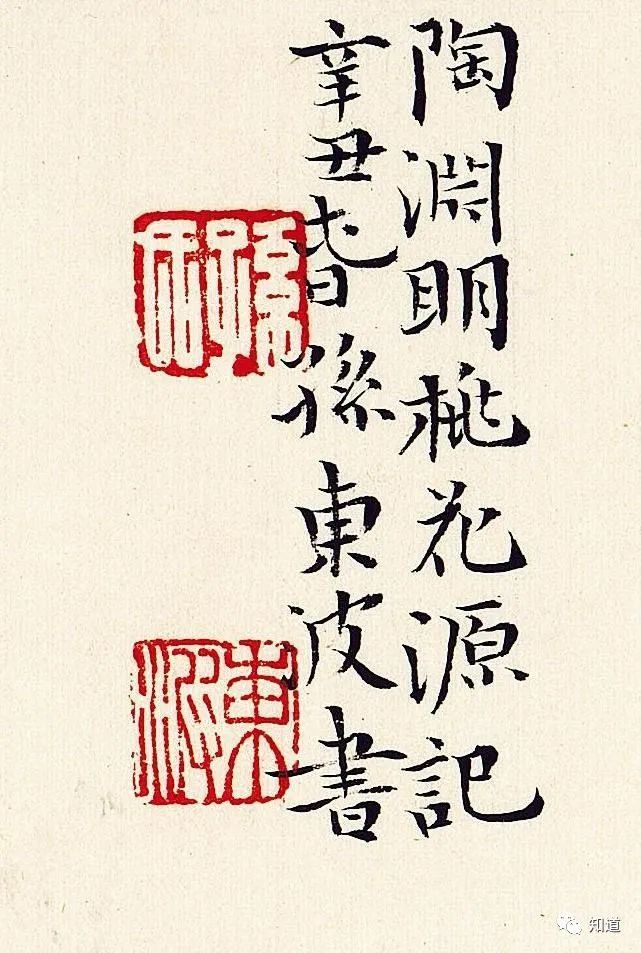 陶淵明桃花源記
辛丑旾孫東波書
東波
知道